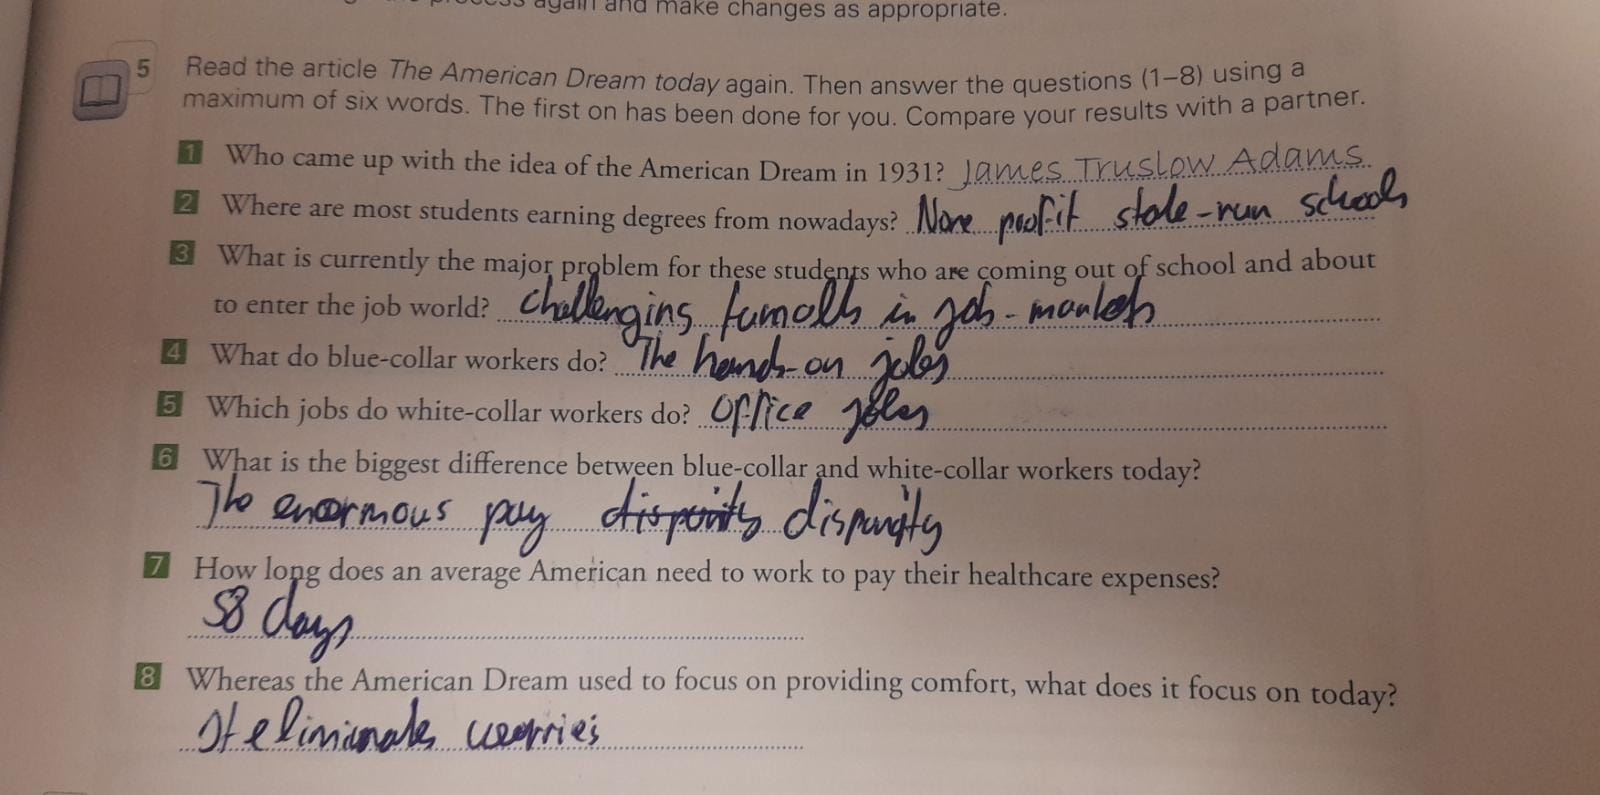 again and make changes as appropriate.
5 Read the article The American Dream today again. Then answer the questions (1–8) using a
maximum of six words. The first on has been done for you. Compare your results with a partner.
1 Who came up with the idea of the American Dream in 1931? James Truslow Adams
2 Where are most students earning degrees from nowadays? None profit state-run schools
3 What is currently the major problem for these students who are coming out of school and about
to enter the job world? Challenging in job-markets
4 What do blue-collar workers do? The hands-on jobs
5 Which jobs do white-collar workers do? Office jobs
6 What is the biggest difference between blue-collar and white-collar workers today?
The enormous pay disparity disparity
7 How long does an average American need to work to pay their healthcare expenses?
58 days
8 Whereas the American Dream used to focus on providing comfort, what does it focus on today?
It eliminates worries